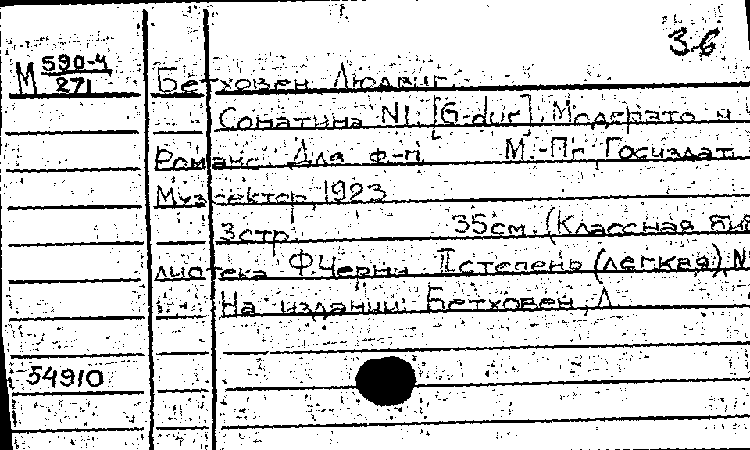 36
М 590-4
271
Бетховен Людвиг.
Сонатина N1. [G-dur]. Модерато и
Романс. Для ф-п. М.-Пг, Госиздат.
Музсектор, 1923
3 стр. 35 см. (Классная биб
лиотека Ф. Черни. II степень (легкая), N
На издании: Бетховен, Л
54910